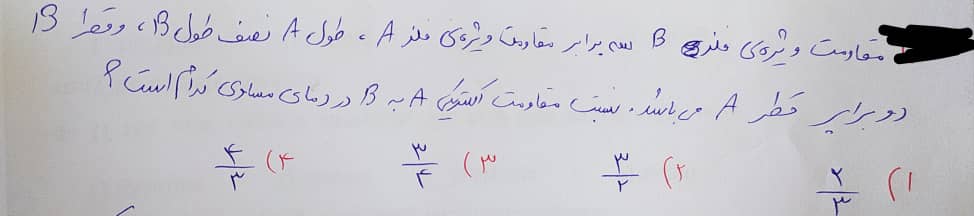 مقاومت ویژه‌ی فلز B سه برابر مقاومت ویژه‌ی فلز A ، طول A نصف طول B، و قطر B
دو برابر قطر A می باشد. نسبت مقاومت الکتریکی A به B در دمای مساوی کدام است؟
۱) ۲/۳ ۲) ۳/۲ ۳) ۳/۴ ۴) ۴/۳